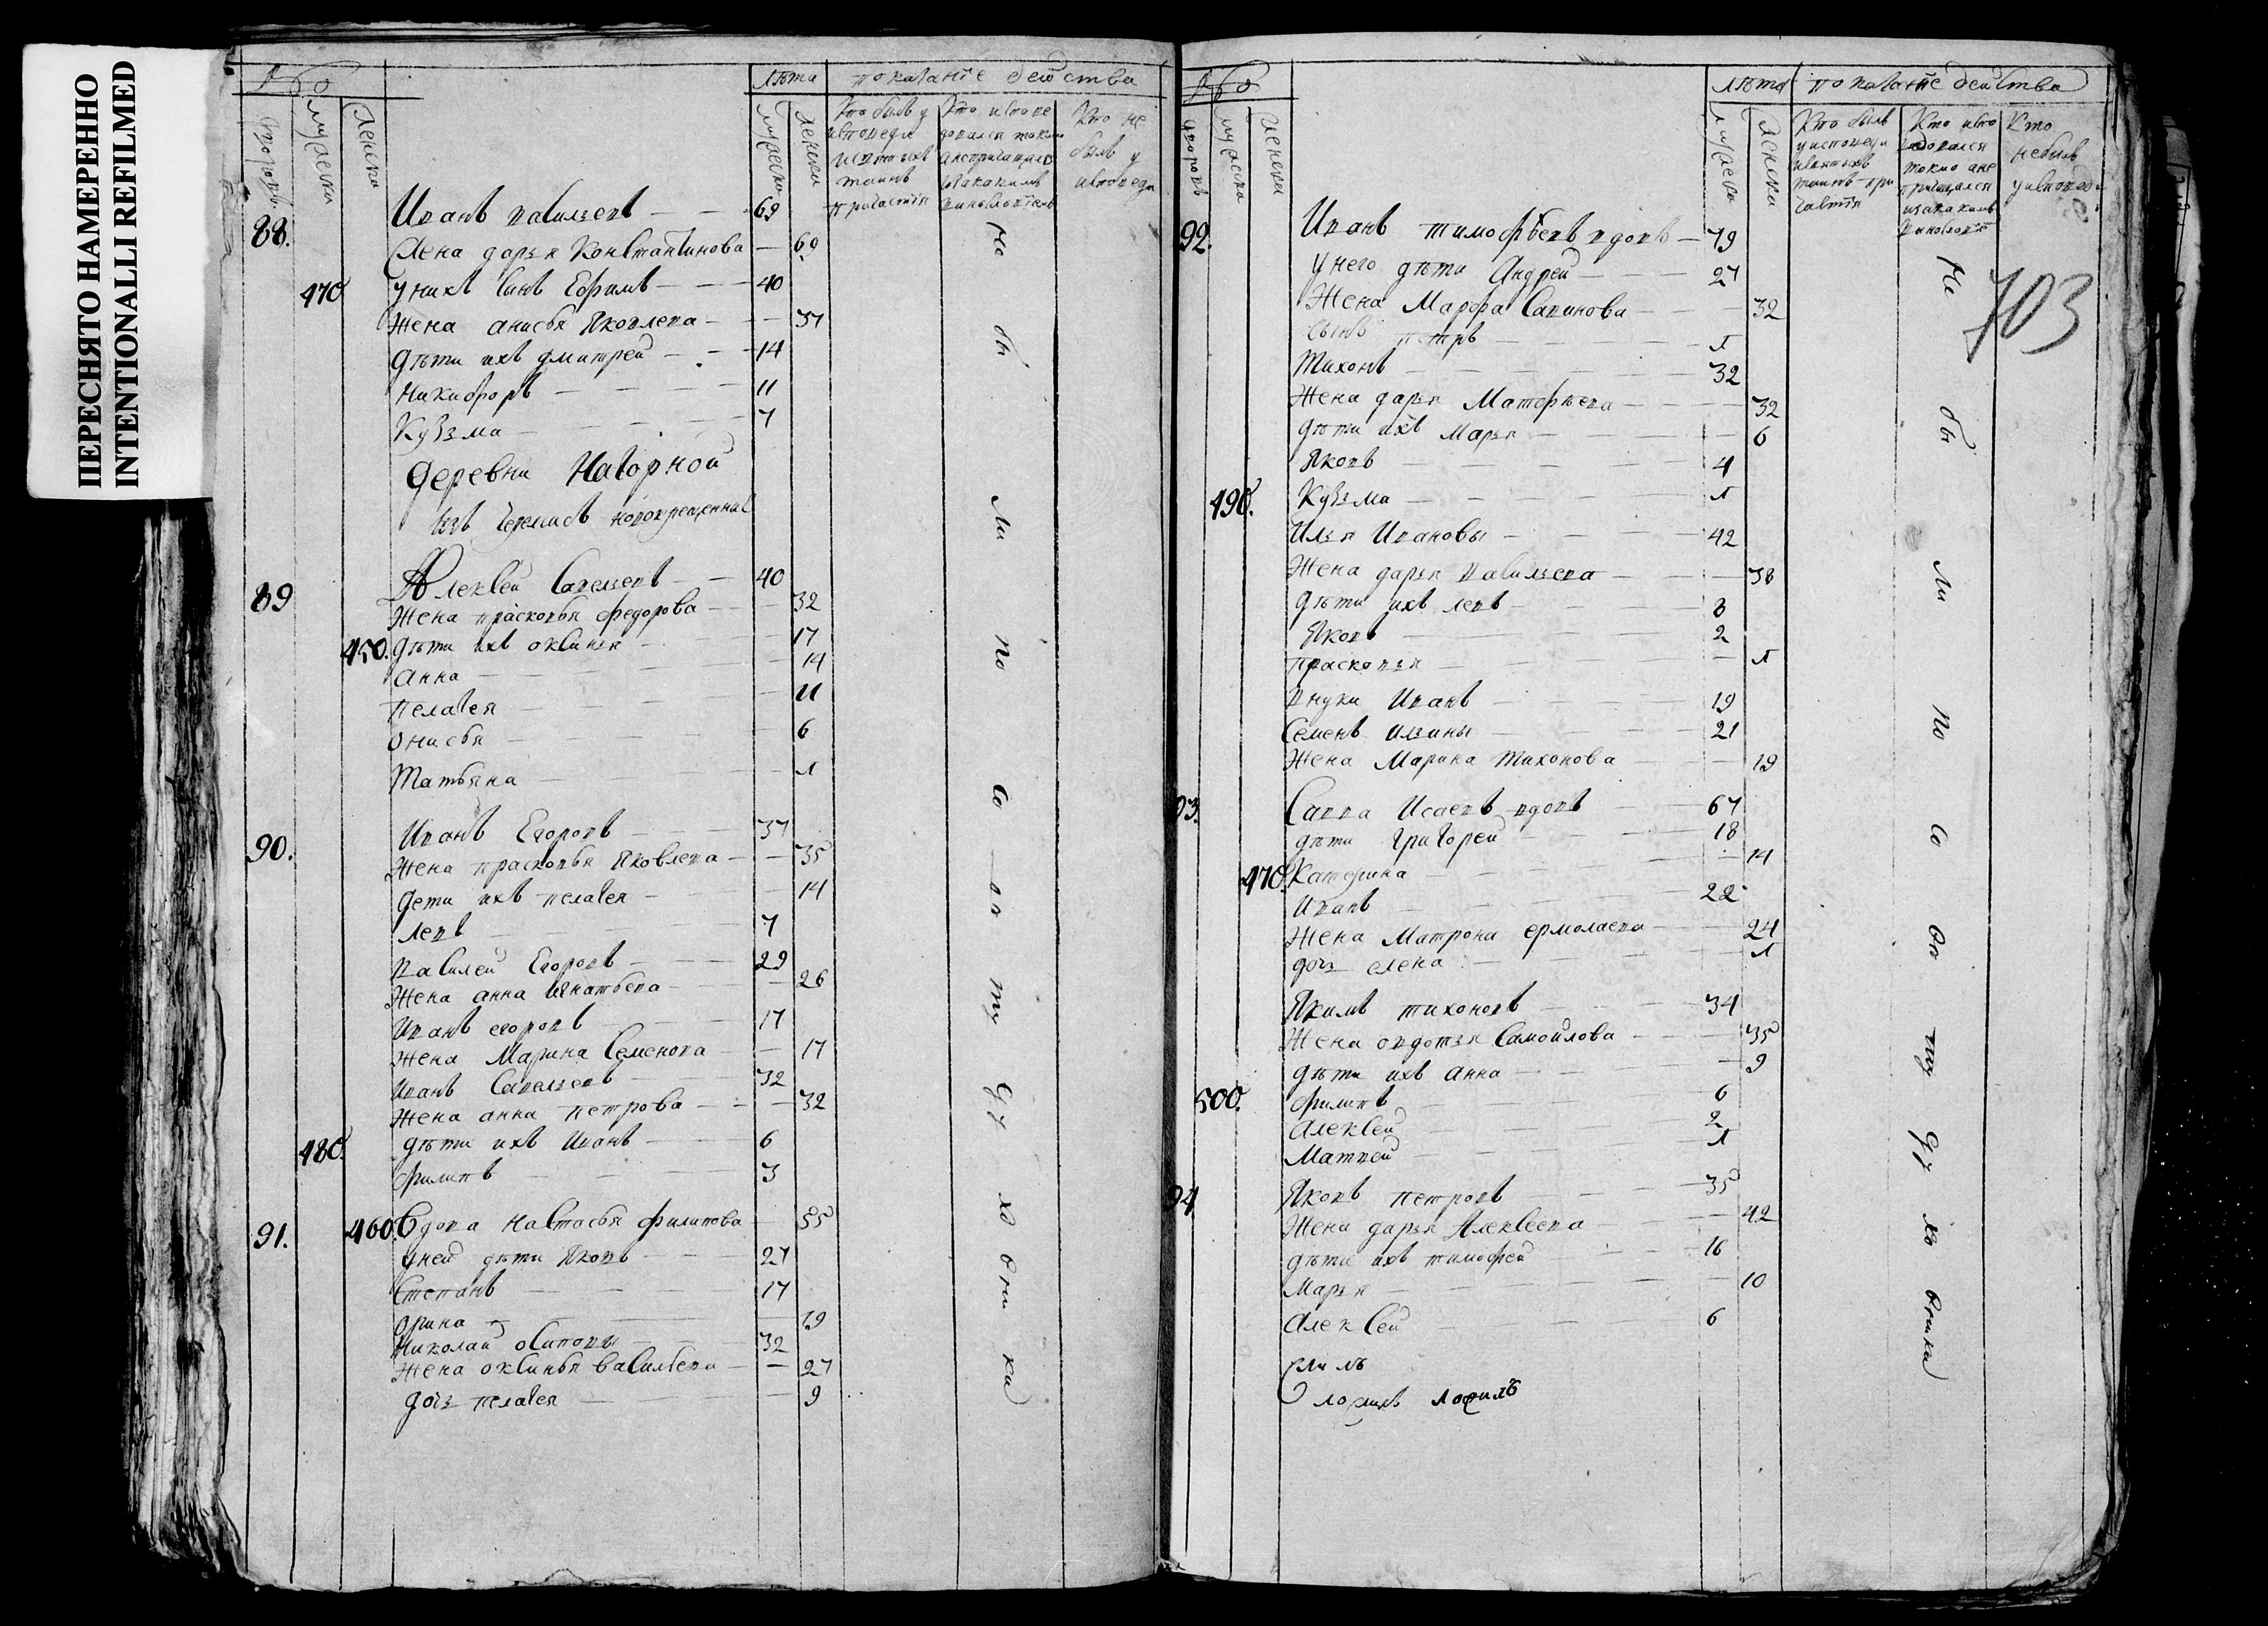 ПЕРЕСНЯТО НАМЕРЕННО
INTENTIONALLI REFILMED
№
лѣта показание действа
дворовъ
мужеска
женска
мужеска
женска
Кто былъ у исповеди и святыхъ таинъ причастия
Кто исповедался токмо а не причащался и за какимъ винословиемъ
Кто не былъ у исповеди
88. Иванъ васильевъ 69
Жена дарья Константинова 69
470 у нихъ сынъ Ефимъ 40
Жена анисья Яковлева 37
дѣти ихъ дмитрей 14
Никифоръ 11
Кузма 7
деревни Нагорной
изъ черемисъ новокрещенныя
89 Алексей Савельевъ 40
Жена прасковья федорова 32
450. дѣти ихъ оксинья 17
анна 14
пелагея 11
онисья 6
Татьяна 1
90. Иванъ Егоровъ 37
Жена прасковья Яковлева 35
дети ихъ пелагея 14
левъ 7
василей Егоровъ 29
Жена анна игнатьева 26
Иванъ егоровъ 17
Жена Марина Семенова 17
иванъ Савельевъ 32
Жена анна петрова 32
480. дѣти ихъ Иванъ 6
филипъ 3
91. 460 вдова настасья филипова 55
у ней дѣти Яковъ 27
Степанъ 17
орина 19
Николай осиповы 32
Жена оксинья васильева 27
дочь пелагея 9
Не бы ли по со от ту ду хо вни ка
№
лѣта показание действа
дворовъ
мужеска
женска
мужеска
женска
Кто былъ у исповеди и святыхъ таинъ причастия
Кто исповедался токмо а не причащался и за какимъ винословие
Кто не былъ у исповеди
703
92. Иванъ тимофѣевъ вдовъ 79
у него дѣти Андрей 27
Жена Марфа Савинова 32
сынъ петръ 1
Тихонъ 32
Жена дарья Матфѣева 32
дѣти ихъ марья 6
Яковъ 4
490. Кузма 1
Илья Ивановы 42
Жена дарья васильева 38
дѣти ихъ левъ 8
Яковъ 2
прасковья 1
внуки Иванъ 19
Семенъ ильины 21
Жена Марина Тихонова 19
93. Савва Исаевъ вдовъ 67
дѣти григорей 18
470. Катерина 14
Иванъ 22
Жена Матрона ермолаева 24
дочь елена 1
Якимъ тихоновъ 34
Жена овдотья Самойлова 35
дѣти ихъ анна 9
500. филипъ 6
алексей 2
Матвей 1
94 Яковъ петровъ 35
Жена дарья Алексеева 42
дѣти ихъ тимофей 16
Марья 10
алексей 6
Не бы ли по со от ту ду хо вника